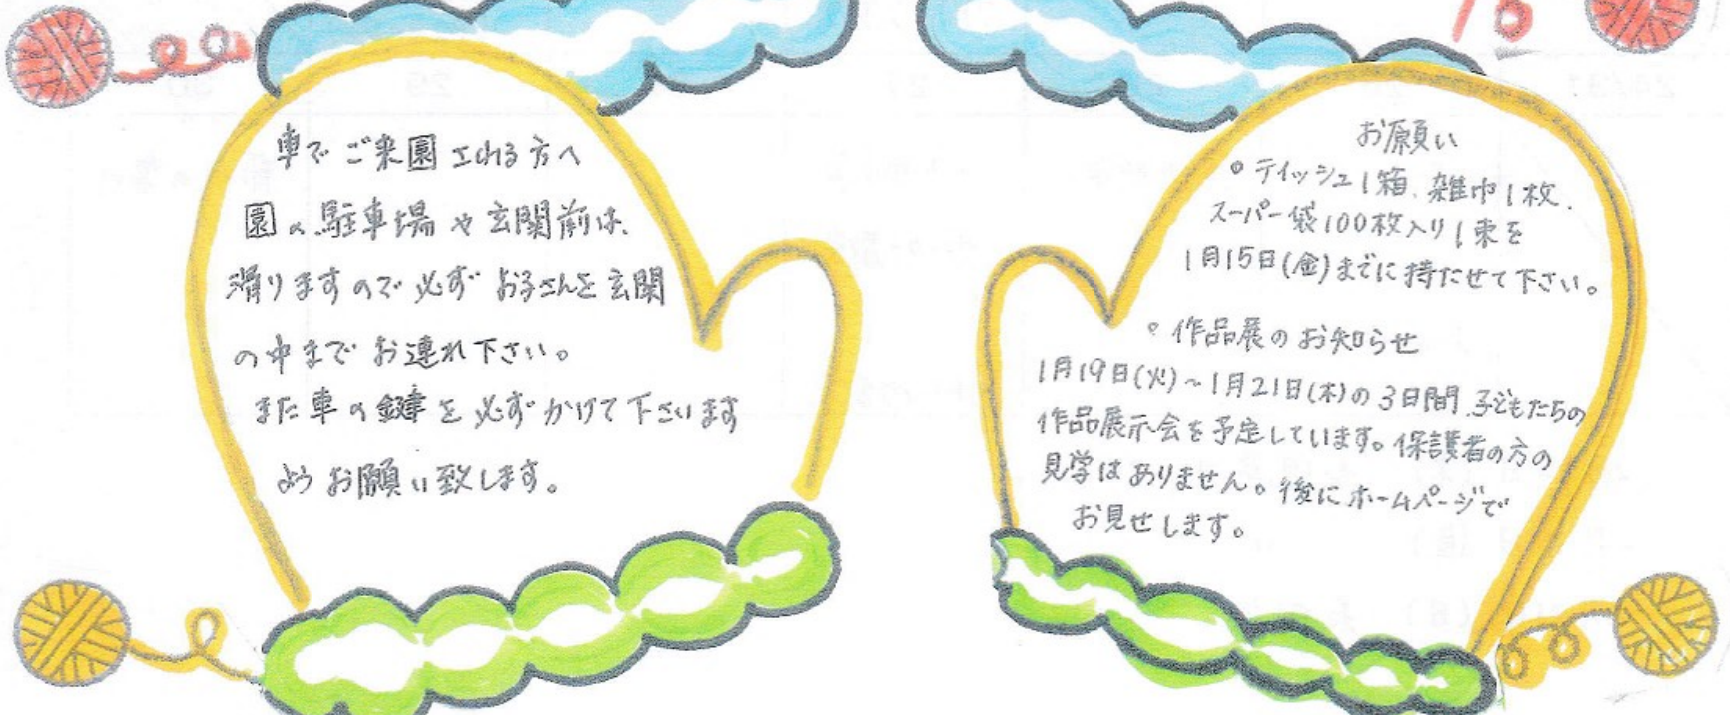 車でご来園される方へ
園の駐車場や玄関前は、
滑りますので必ずお子さんを玄関
の中までお連れ下さい。
また車の鍵を必ずかけて下さいます
ようお願い致します。
お願い
○ ティッシュ1箱、雑巾1枚、
スーパー袋100枚入り1束を
1月15日(金)までに持たせて下さい。
○ 作品展のお知らせ
1月19日(火)~1月21日(木)の3日間、子どもたちの
作品展示会を予定しています。保護者の方の
見学はありません。後にホームページで
お見せします。